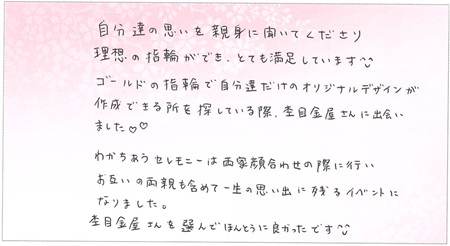 自分達の思いを親身に聞いてくださり
理想の指輪ができ、とても満足しています
ゴールドの指輪で自分達だけのオリジナルデザインが
作成できる所を探している際、杢目金屋さんに出会い
ました♡♡
わかちあうセレモニーは両家顔合わせの際に行い
お互いの両親も含めて一生の思い出に残るイベントに
なりました。
杢目金屋さんを選んでほんとうに良かったです